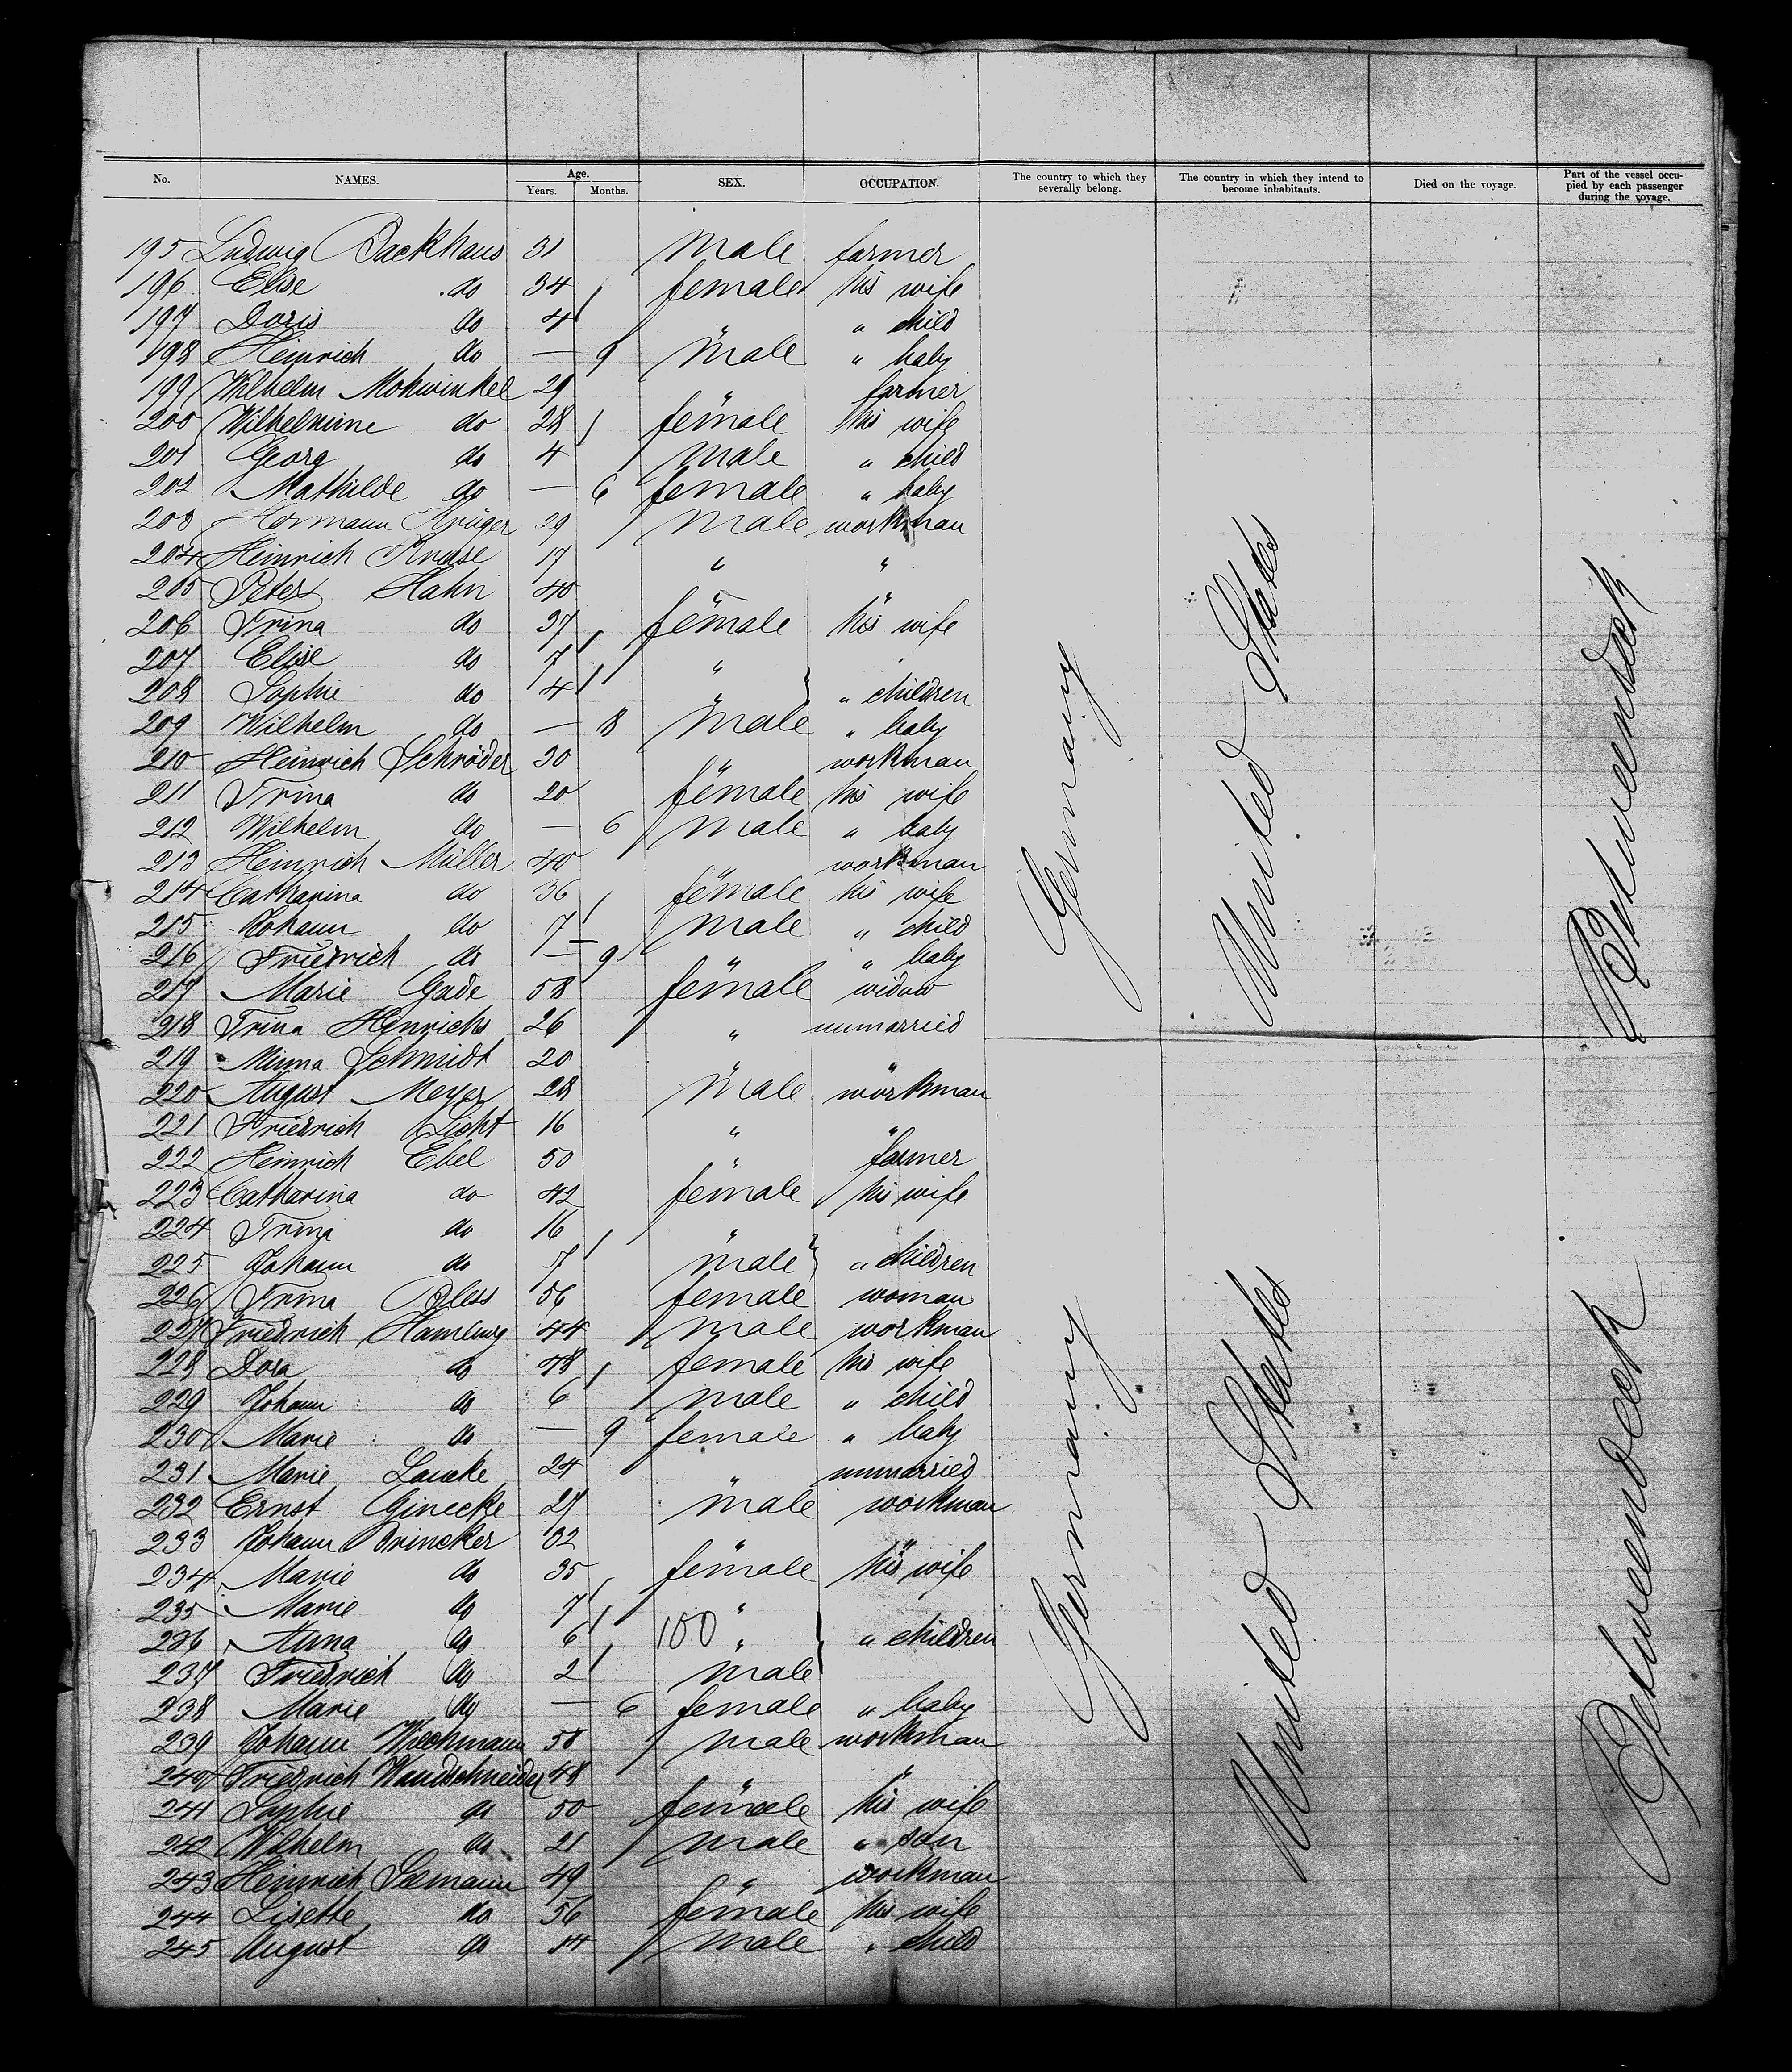 No. NAMES. Age. Years. Months. SEX. OCCUPATION. The country to which they severally belong. The country in which they intend to become inhabitants. Died on the voyage. Part of the vessel occupied by each passenger during the voyage.
195 Ludwig Backhaus 31 male farmer
196 Else do 34 female his wife
197 Doris do 4 " child
198 Heinrich do — 9 male " baby
199 Wilhelm Mohwinkel 29 " farmer
200 Wilhelmine do 28 female his wife
201 Georg do 4 male " child
202 Mathilde do — 6 female " baby
203 Hermann Krüger 29 male workman
204 Heinrich Kruse 17 " "
205 Peter Hahn 40 " "
206 Trina do 37 female his wife
207 Elise do 7 "
208 Sophie do 4 " " children
209 Wilhelm do — 8 male " baby
210 Heinrich Schröder 30 " workman
211 Trina do 20 female his wife
212 Wilhelm do — 6 male " baby
213 Heinrich Müller 40 " workman
214 Catharina do 36 female his wife
215 Johann do 7 male " child
216 Friedrich do — 9 " " baby
217 Marie Gade 58 female widow
218 Trina Henrichs 26 " unmarried
219 Minna Schmidt 20 " "
220 August Meyer 28 male workman
221 Friedrich Licht 16 " "
222 Heinrich Ebel 50 " farmer
223 Catharina do 42 female his wife
224 Trina do 16 "
225 Johann do 7 male " children
226 Trina Bless 56 female woman
227 Friedrich Hamburg 44 male workman
228 Dora do 48 female his wife
229 Johann do 6 male " child
230 Marie do — 9 female " baby
231 Marie Laucke 24 " unmarried
232 Ernst Ginecke 27 male workman
233 Johann Brincker 32 " "
234 Marie do 35 female his wife
235 Marie do 7 "
236 Anna do 6 100 " " children
237 Friedrich do 2 male
238 Marie do — 6 female " baby
239 Johann Wiechmann 58 male workman
240 Friedrich Wandschneider 48 " "
241 Sophie do 50 female his wife
242 Wilhelm do 21 male " son
243 Heinrich Seemann 49 " workman
244 Lisette do 56 female his wife
245 August do 14 male " child
Germany
United States
Betweendeck
Germany
United States
Betweendeck